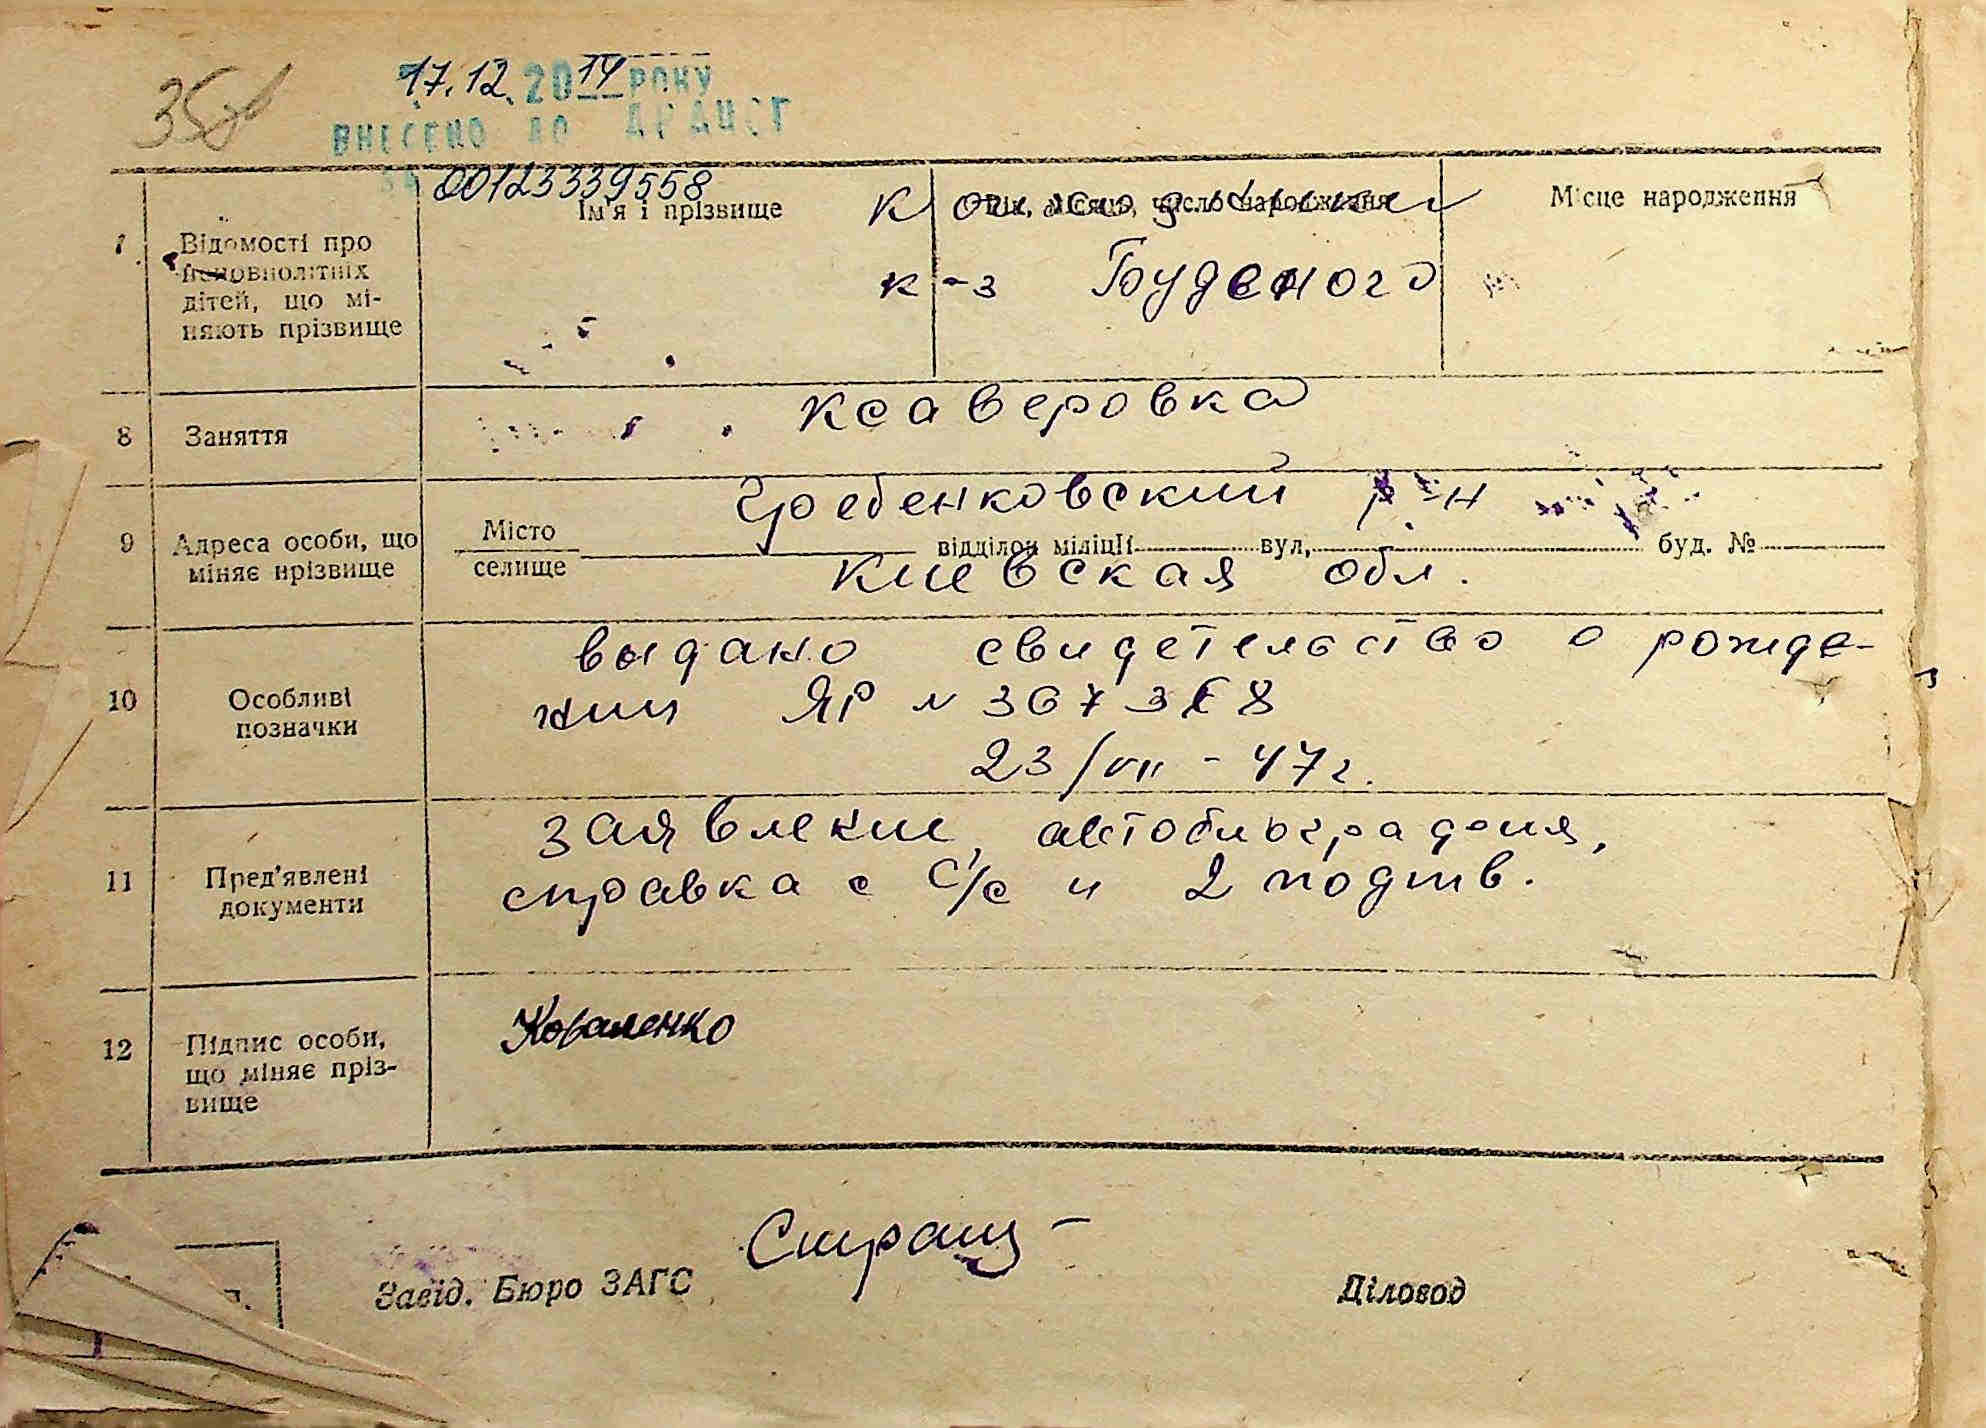 358
17.12.2014 РОКУ
ВНЕСЕНО ДО ДРАЦСГ
за 00123339558
Ім'я і прізвище
Рік, місяць, число народження
Місце народження
колхозник
к-з Буденого
7
Відомості про
неповнолітніх
дітей, що мі-
няють прізвище
8 Заняття
Ксаверовка
9
Адреса особи, що
міняє прізвище
Гребенковский р-н
Місто
селище
відділок міліції вул, буд. №
Киевская обл.
10
Особливі
позначки
выдано свидетельство о рожде-
нии ЯР №
23/VII - 47 г.
11
Пред'явлені
документи
заявление, автобиография,
справка с С/с и 2 подтв.
12
Підпис особи,
що міняє пріз-
вище
Коваленко
Завід. Бюро ЗАГС
Діловод